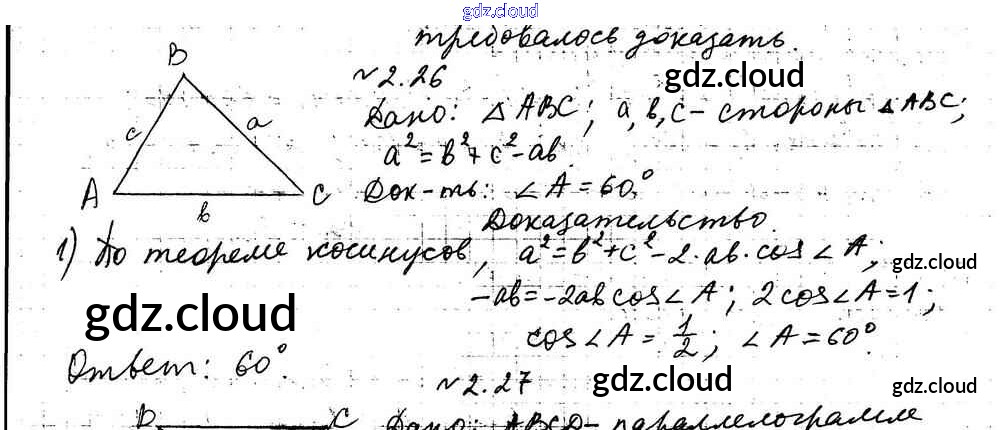 gdz.cloud
требовалось доказать.
B
№2.26
gdz.cloud
Дано: △ABC; a, b, c - стороны △ABC;
c a
a² = b² + c² - ab.
A C
Док-ть: ∠A = 60°
b
Доказательство.
1) По теореме косинусов, a² = b² + c² - 2·ab·cos∠A;
gdz.cloud
-ab = -2ab cos∠A; 2cos∠A = 1;
gdz.cloud
cos∠A = 1/2; ∠A = 60°.
Ответ: 60°.
№2.27
gdz.cloud
gdz.cloud
B C
Дано: ABCD - параллелограмм